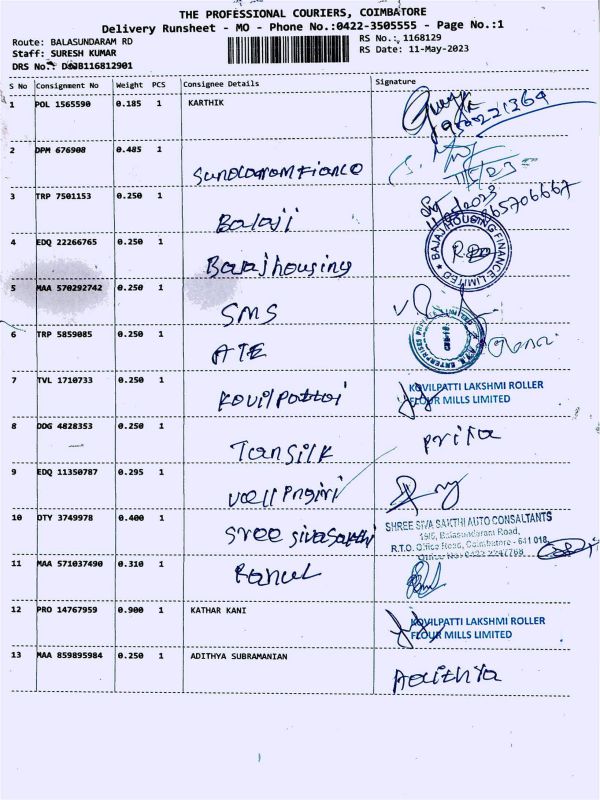 THE PROFESSIONAL COURIERS, COIMBATORE
Delivery Runsheet - MO - Phone No.:0422-3505555 - Page No.:1
Route: BALASUNDARAM RD
Staff: SURESH KUMAR
DRS No.: DBJB116812901
RS No.: 1168129
RS Date: 11-May-2023
S No Consignment No Weight PCS Consignee Details Signature
1 POL 1565590 0.185 1 KARTHIK
2 DPM 676908 0.485 1 Sundaramfiance
3 TRP 7501153 0.250 1 Balaji
4 EDQ 22266765 0.250 1 Bajajhousing
BAJAJ HOUSING FINANCE LIMITED
5 MAA 570292742 0.250 1 SMS
6 TRP 5859085 0.250 1 ATE
7 TVL 1710733 0.250 1 Kovilpattai
KOVILPATTI LAKSHMI ROLLER
FLOUR MILLS LIMITED
8 DDG 4828353 0.250 1 Tansilk priya
9 EDQ 11350787 0.295 1
10 OTY 3749978 0.400 1 Sree sivasakthi
SHREE SIVA SAKTHI AUTO CONSALTANTS
19/5, Balasundaram Road,
R.T.O. Office Road, Coimbatore - 641 018.
Office No: 0422 2247768
11 MAA 571037490 0.310 1 Rahul
12 PRO 14767959 0.900 1 KATHAR KANI
KOVILPATTI LAKSHMI ROLLER
FLOUR MILLS LIMITED
13 MAA 859895984 0.250 1 ADITHYA SUBRAMANIAN Adithya